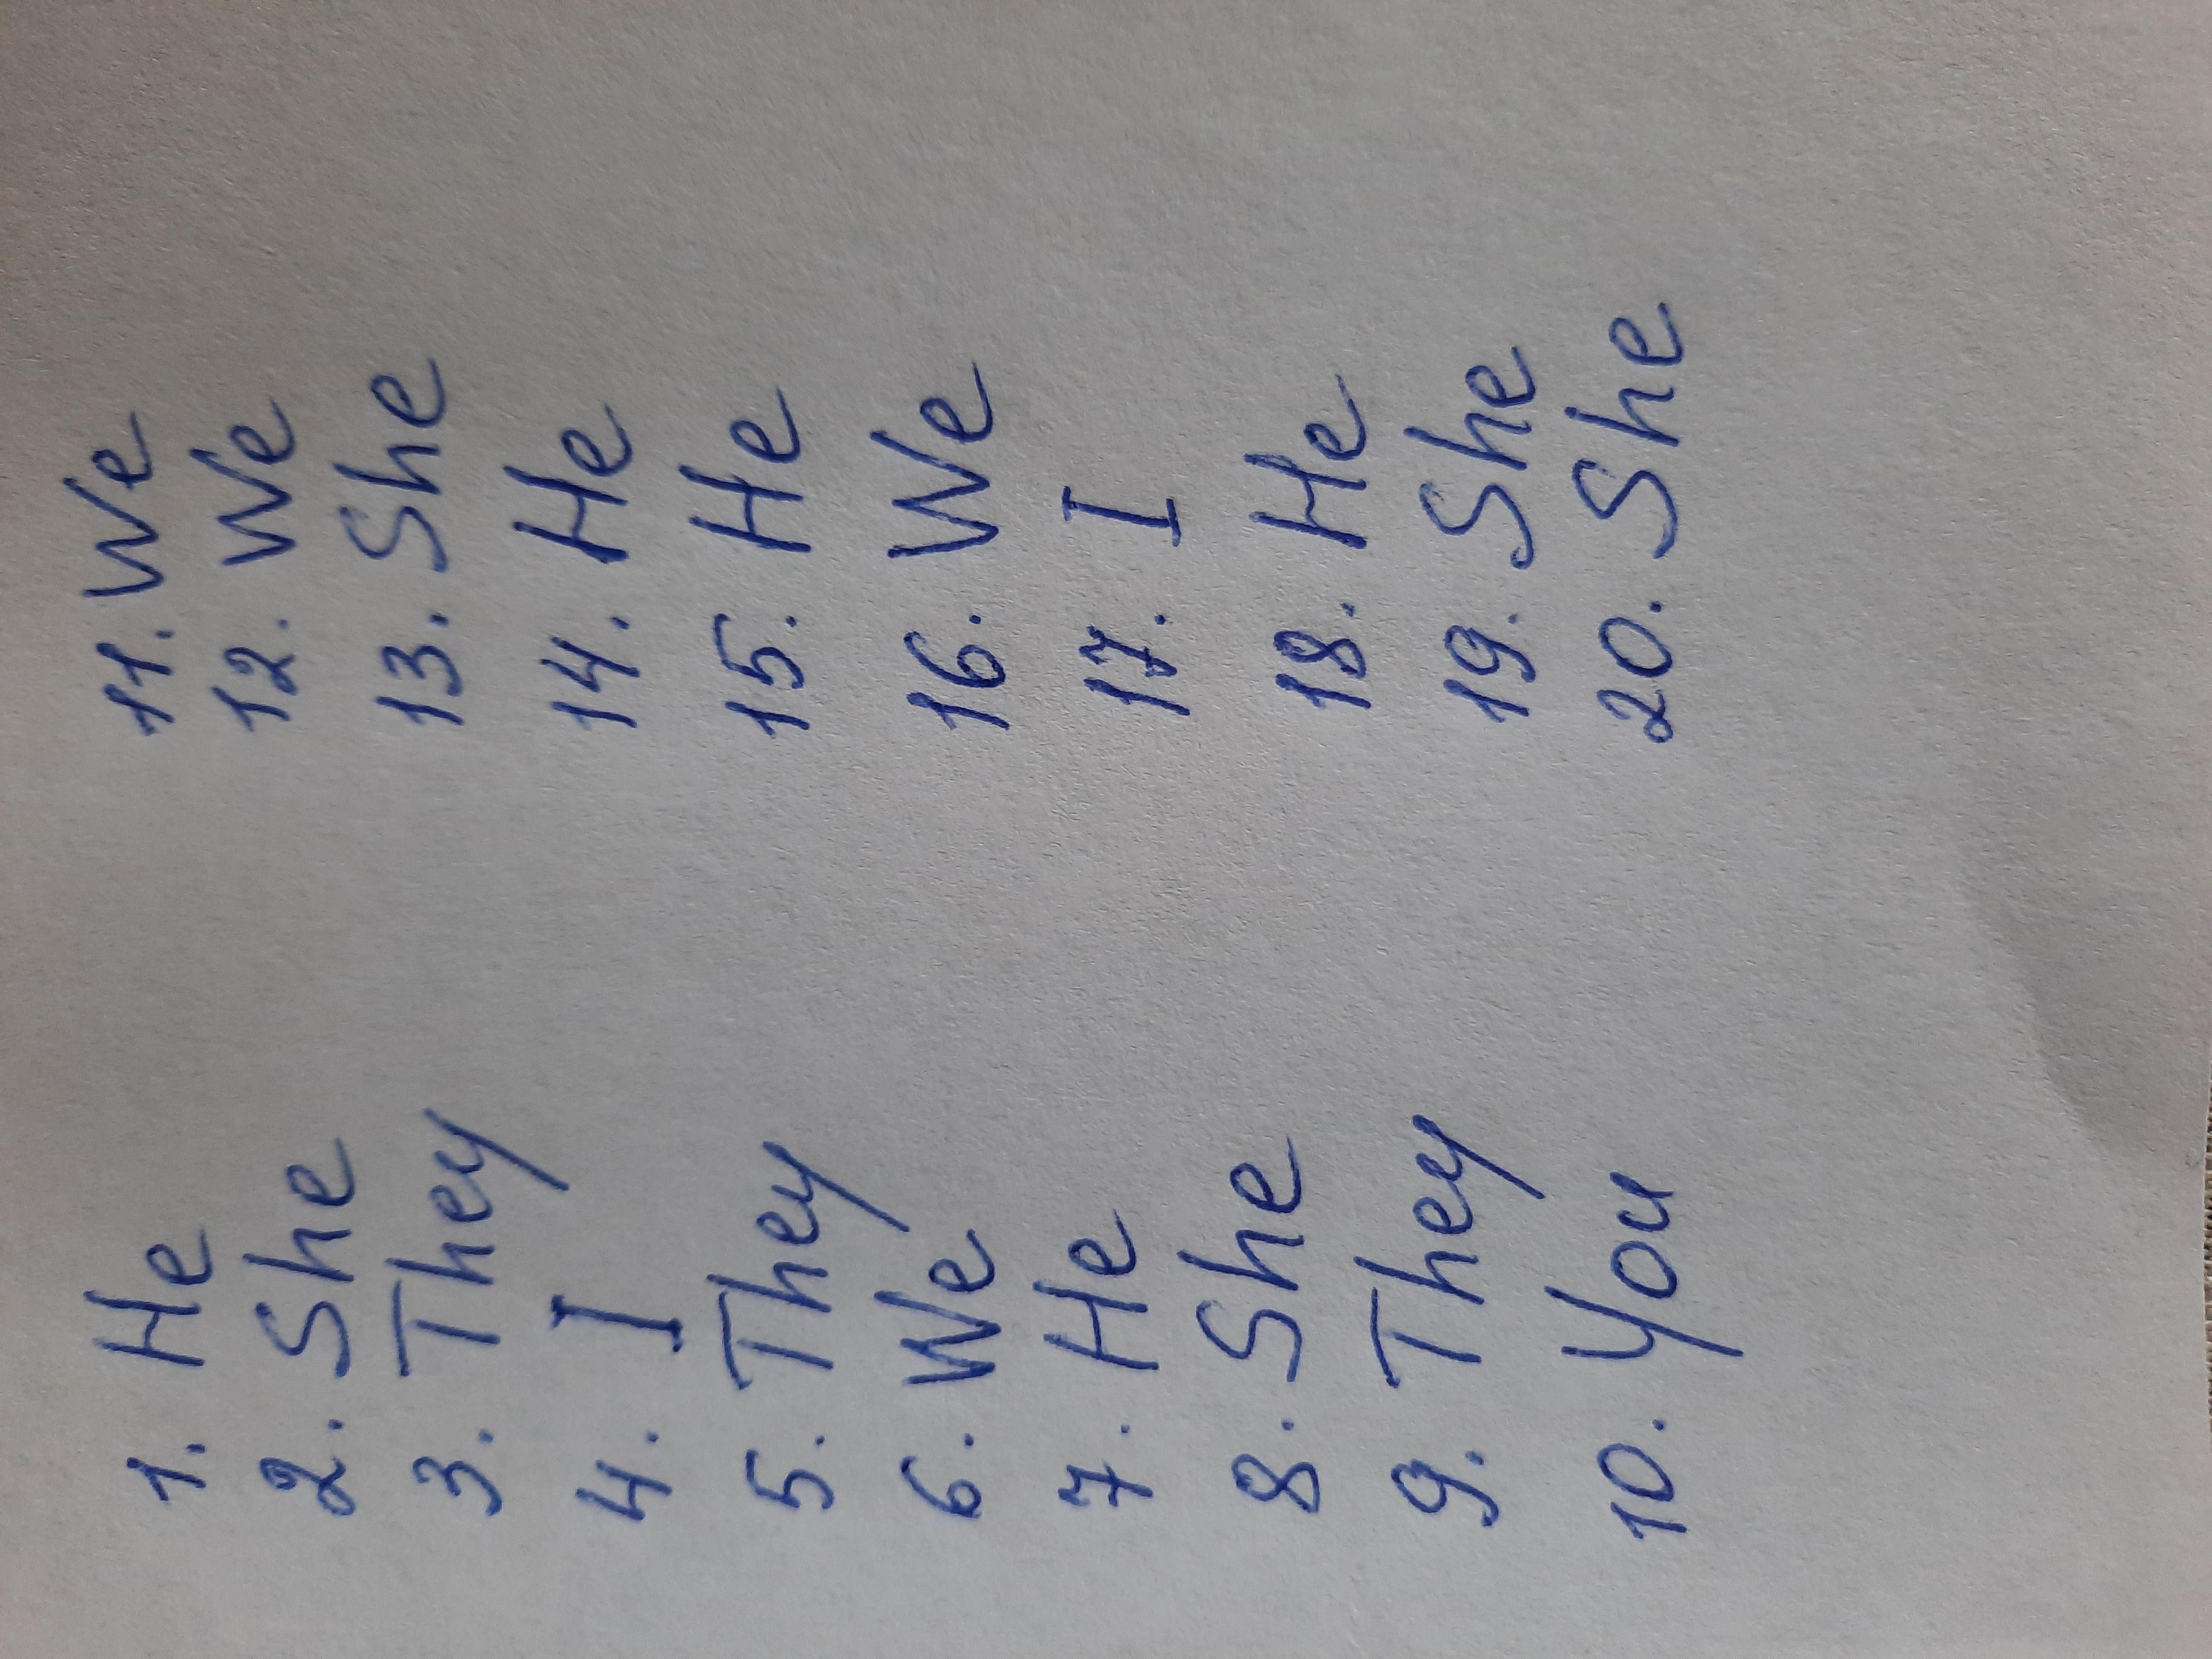 1. He
2. She
3. They
4. I
5. They
6. We
7. He
8. She
9. They
10. You
11. We
12. We
13. She
14. He
15. He
16. We
17. I
18. He
19. She
20. She